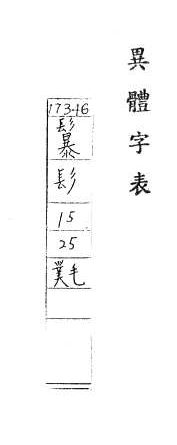 異體字表
173-16
髟
15
25